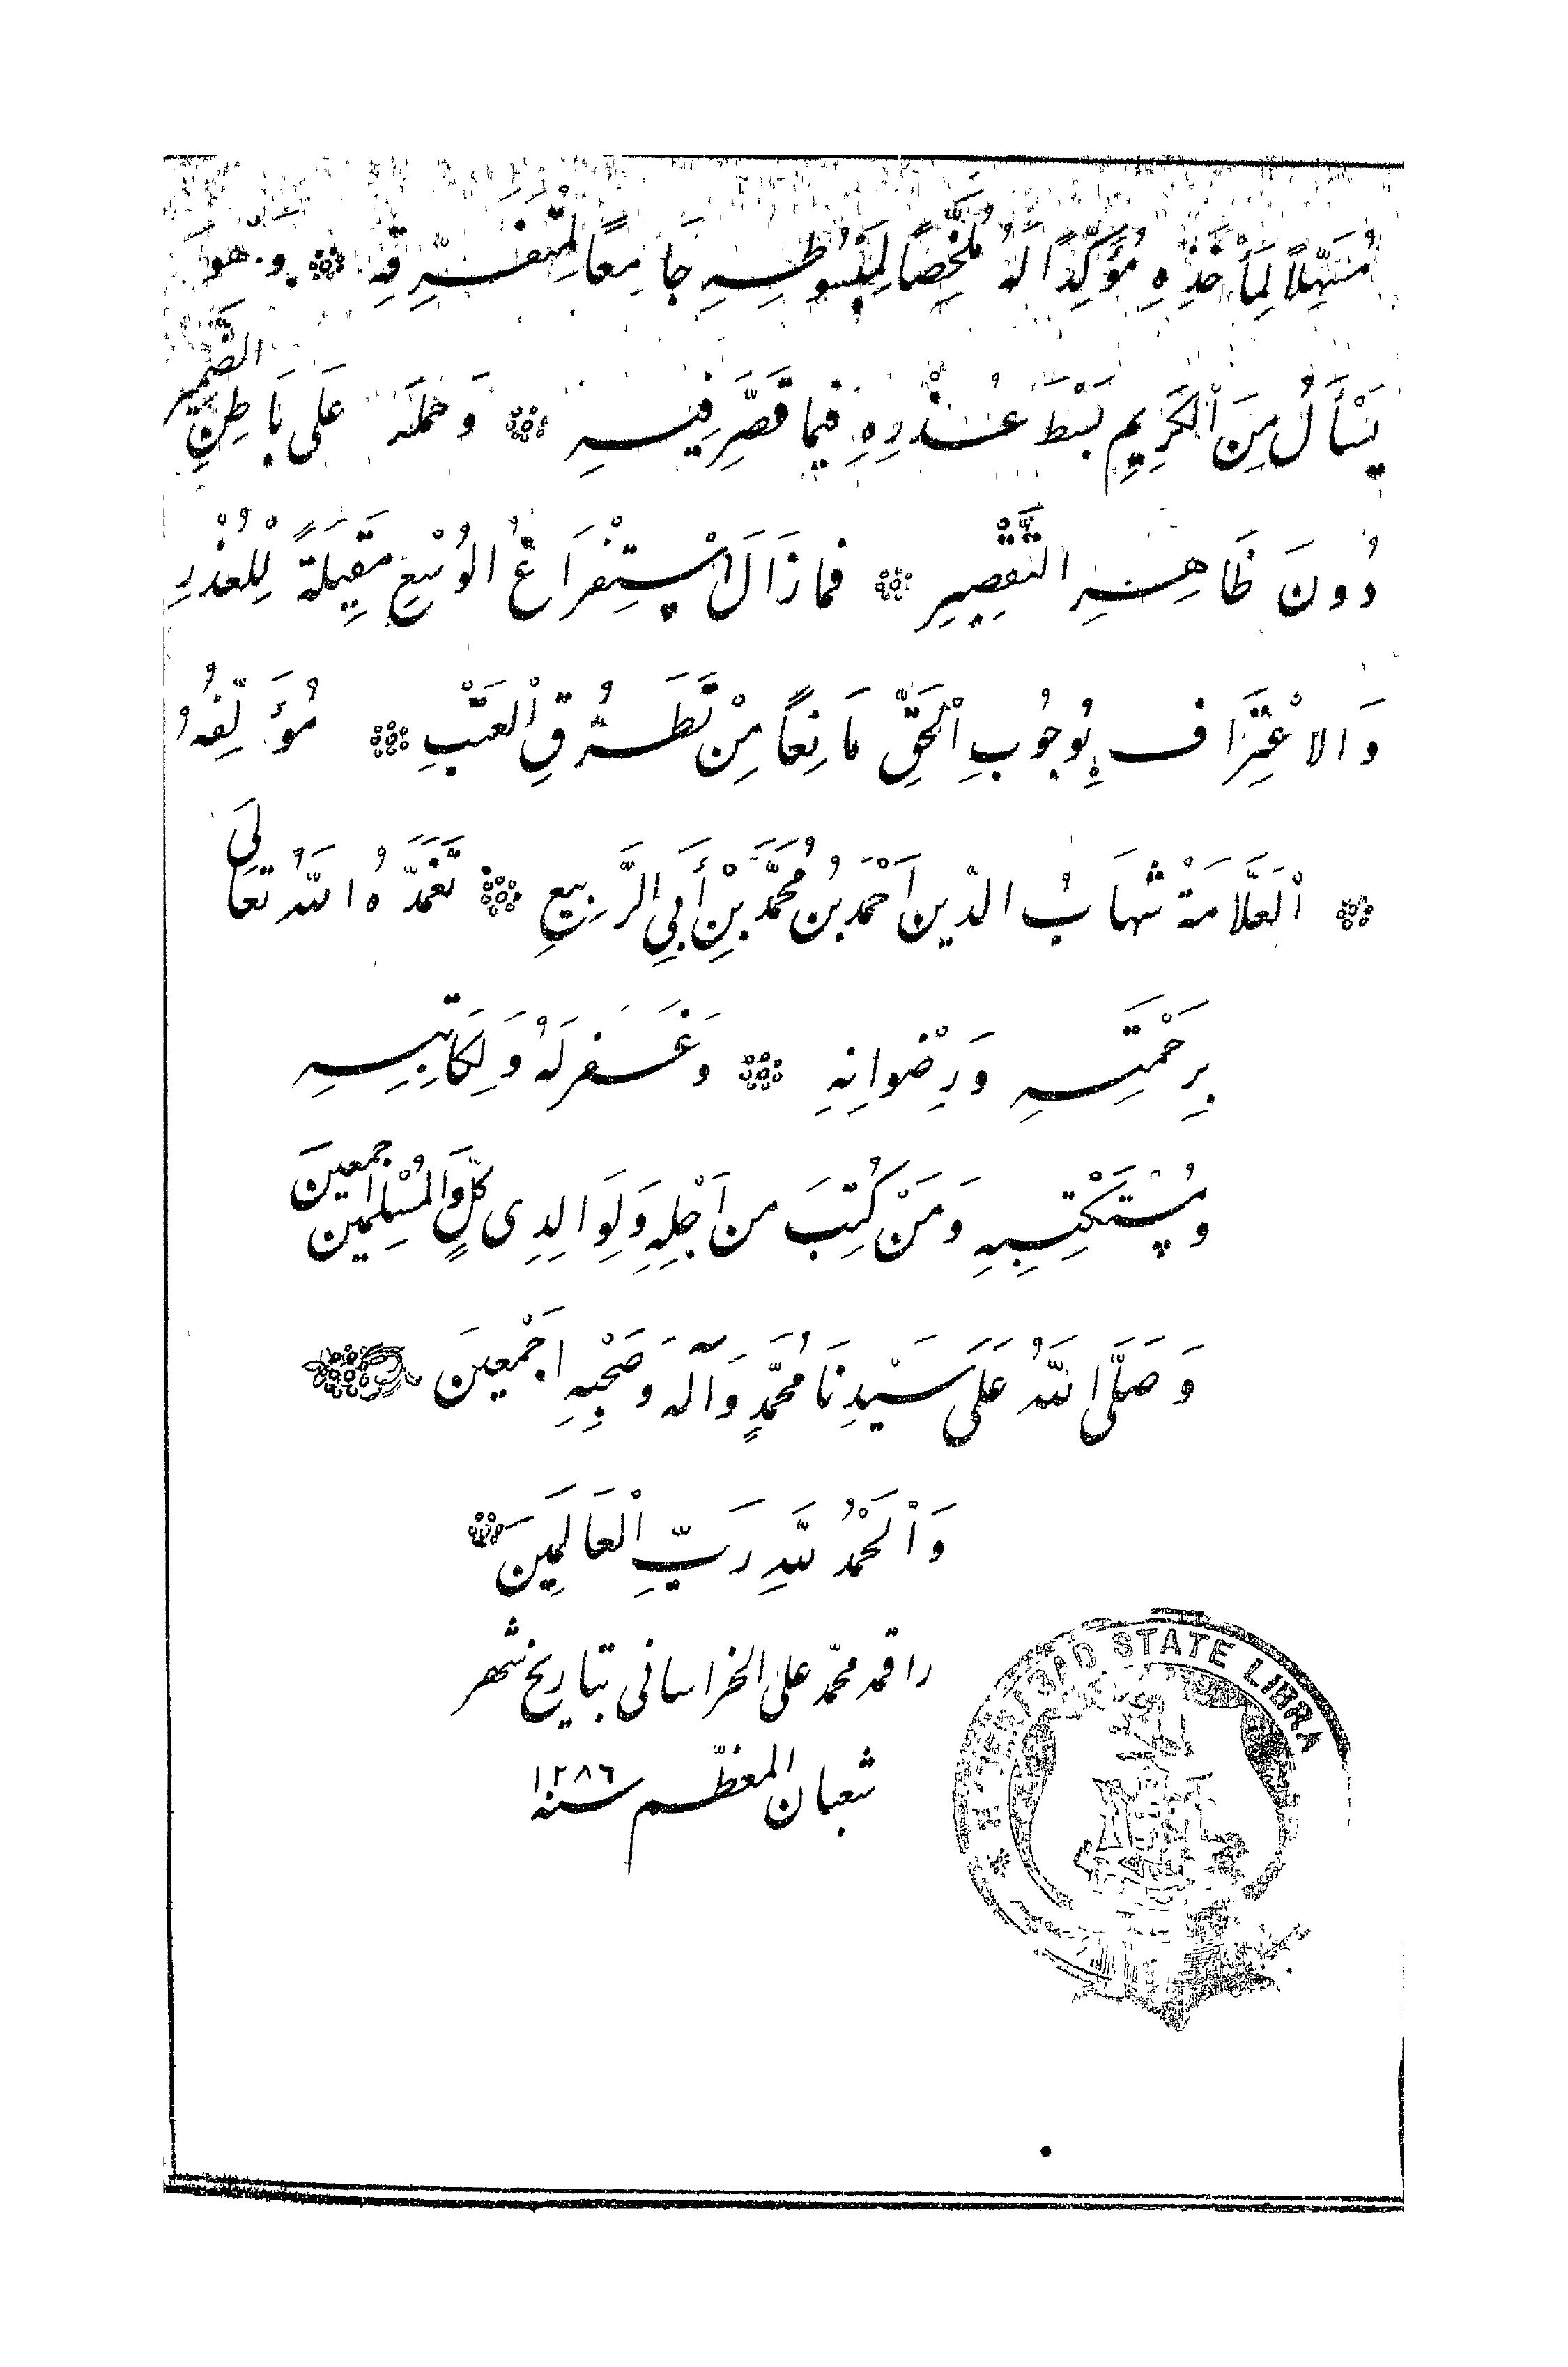 مُسَهِّلاً لِمَأْخَذِهِ مُؤَكِّدًا لَهُ مُلَخِّصًا لِمَبْسُوطِهِ جَامِعًا لِمُتَفَرِّقِهِ ۞ وَهُوَ
يَسْأَلُ مِنَ الْكَرِيمِ بَسْطَ عُذْرِهِ فِيمَا قَصَّرَ فِيهِ ۞ وَحَمْلَهُ عَلَى بَاطِنِ الضَّمِيرِ
دُونَ ظَاهِرِ التَّقْصِيرِ ۞ فَمَا زَالَ اسْتِفْرَاغُ الْوُسْعِ مُقِيلَةً لِلْعُذْرِ
وَالاعْتِرَافُ بِوُجُوبِ الْحَقِّ مَانِعًا مِنْ تَطَرُّقِ الْعَتْبِ ۞ مُؤَلِّفُهُ
۞ الْعَلَّامَةُ شِهَابُ الدِّينِ أَحْمَدُ بْنُ مُحَمَّدِ بْنِ أَبِي الرَّبِيعِ ۞ تَغَمَّدَهُ اللّٰهُ تَعَالَى
بِرَحْمَتِهِ وَرِضْوَانِهِ ۞ وَغَفَرَ لَهُ وَلِكَاتِبِهِ
وَمُسْتَكْتِبِهِ وَمَنْ كُتِبَ مِنْ أَجْلِهِ وَلِوَالِدِي كُلٍّ وَالْمُسْلِمِينَ أَجْمَعِينَ
وَصَلَّى اللّٰهُ عَلَى سَيِّدِنَا مُحَمَّدٍ وَآلِهِ وَصَحْبِهِ أَجْمَعِينَ
وَالْحَمْدُ لِلّٰهِ رَبِّ الْعَالَمِينَ ۞
راقمه محمّد علی الخراسانی بتاریخ شهر
شعبان المعظّم سنه ١٢٨٦
STATE LIBRA